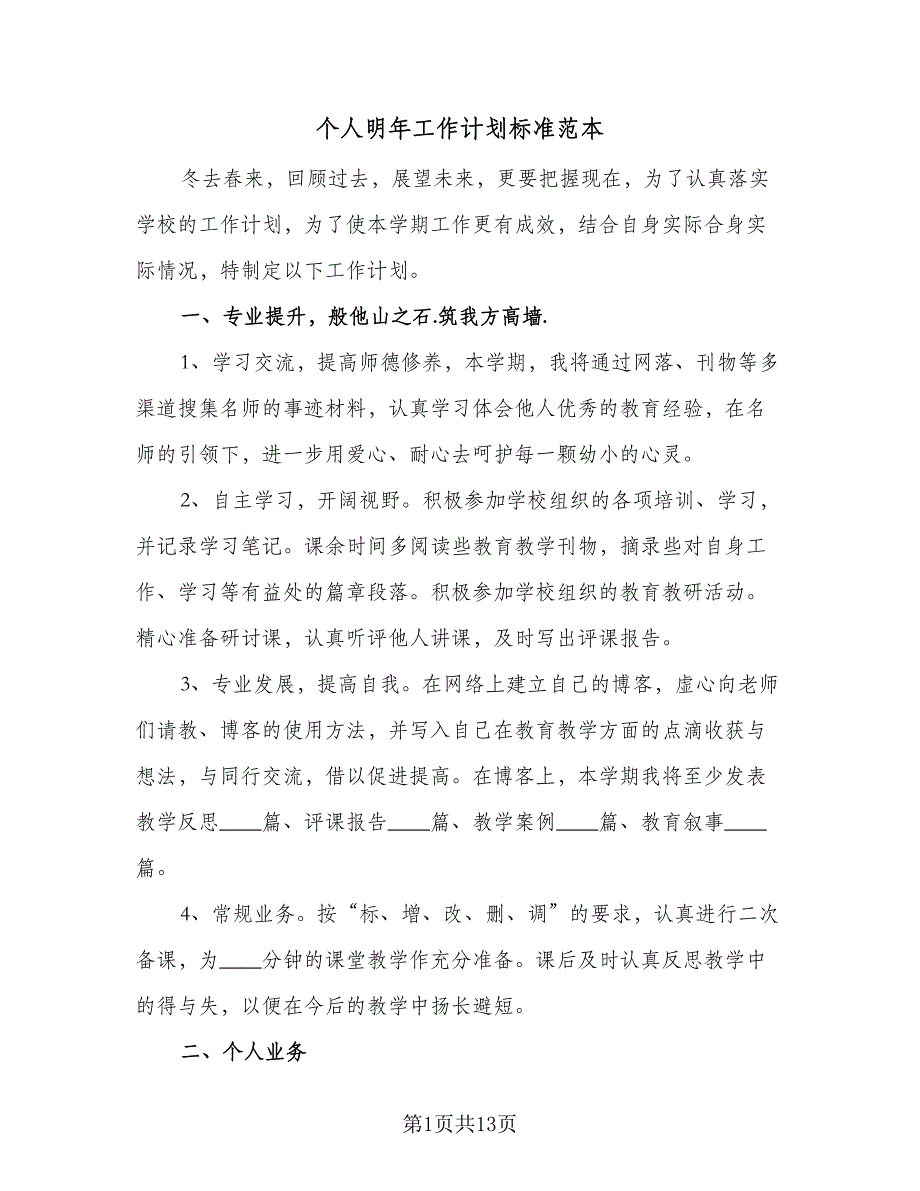 个人明年工作计划标准范本
冬去春来，回顾过去，展望未来，更要把握现在，为了认真落实
学校的工作计划，为了使本学期工作更有成效，结合自身实际合身实
际情况，特制定以下工作计划。
一、专业提升，般他山之石.筑我方高墙.
1、学习交流，提高师德修养，本学期，我将通过网落、刊物等多
渠道搜集名师的事迹材料，认真学习体会他人优秀的教育经验，在名
师的引领下，进一步用爱心、耐心去呵护每一颗幼小的心灵。
2、自主学习，开阔视野。积极参加学校组织的各项培训、学习，
并记录学习笔记。课余时间多阅读些教育教学刊物，摘录些对自身工
作、学习等有益处的篇章段落。积极参加学校组织的教育教研活动。
精心准备研讨课，认真听评他人讲课，及时写出评课报告。
3、专业发展，提高自我。在网络上建立自己的博客，虚心向老师
们请教、博客的使用方法，并写入自己在教育教学方面的点滴收获与
想法，与同行交流，借以促进提高。在博客上，本学期我将至少发表
教学反思____篇、评课报告____篇、教学案例____篇、教育叙事____
篇。
4、常规业务。按“标、增、改、删、调”的要求，认真进行二次
备课，为____分钟的课堂教学作充分准备。课后及时认真反思教学中
的得与失，以便在今后的教学中扬长避短。
二、个人业务
第1页共13页